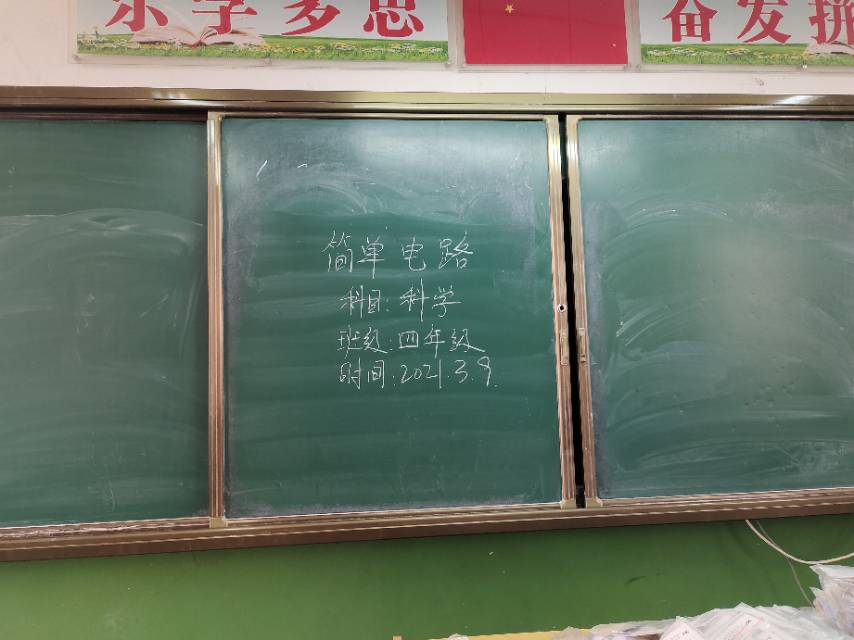 乐学多思
奋发拼
简单电路
科目:科学
班级:四年级
时间:2021.3.9.